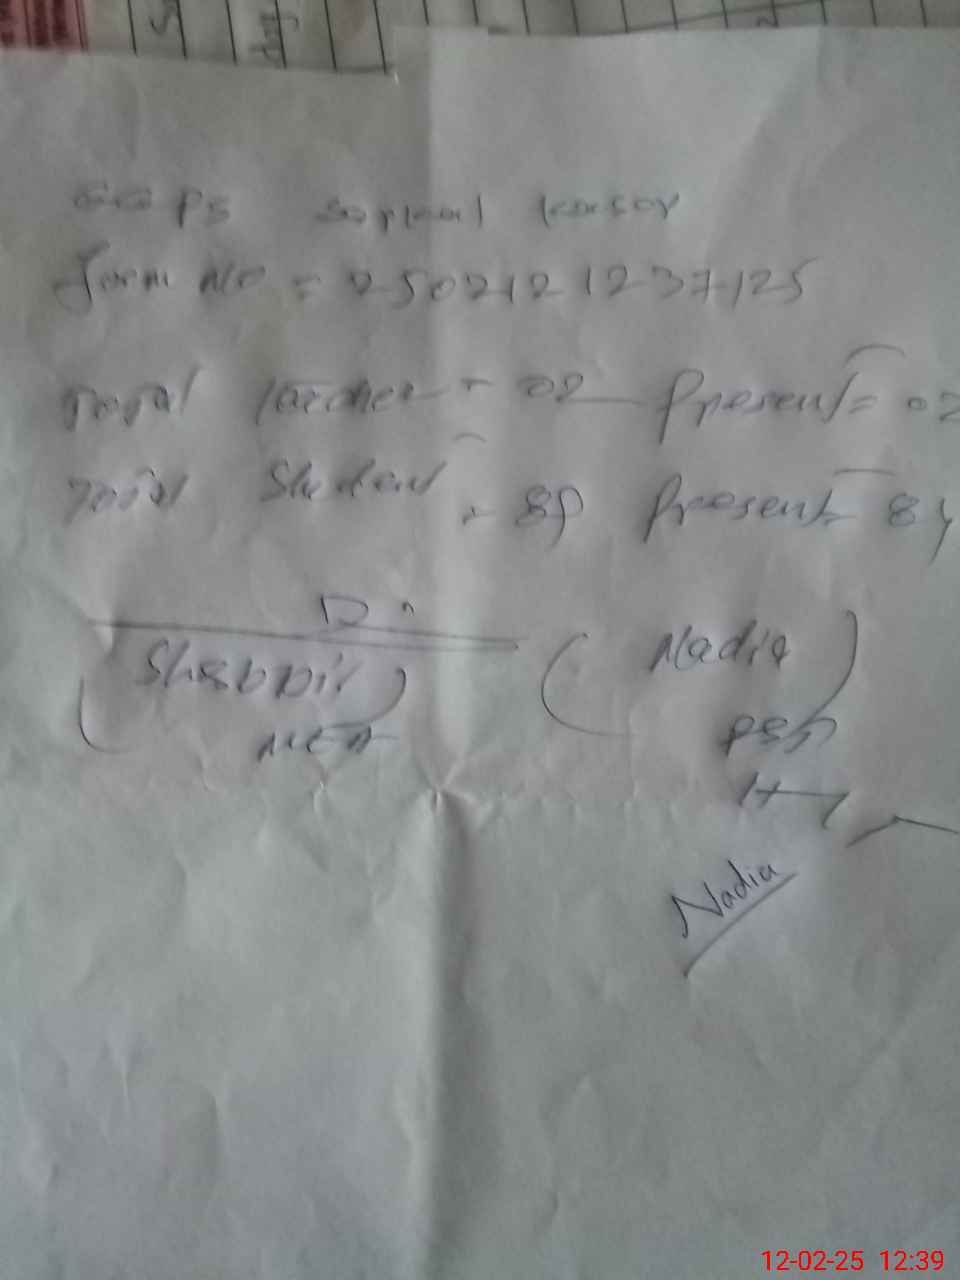 GGPS
Form No = 2502121237125
Total Teacher = 02 Present = 02
Total Student = 89 Present = 84
(Shabbir) (Nadia)
MEA PSh
Nadia
12-02-25 12:39